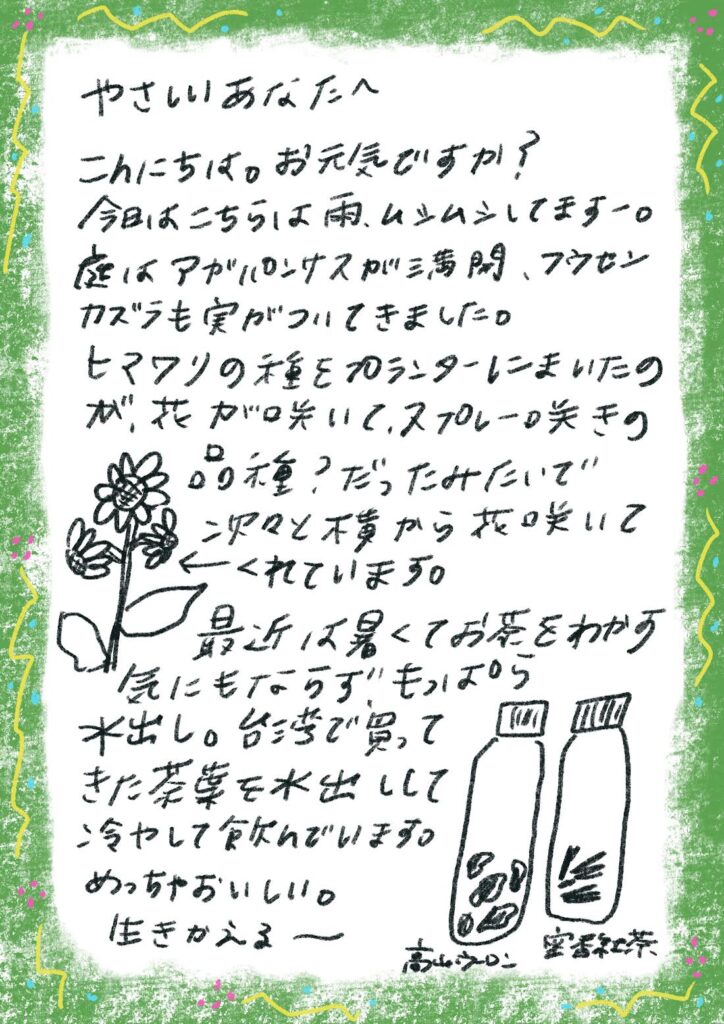 やさしいあなたへ
こんにちは。お元気ですか?
今日はこちらは雨、ムシムシしてますー。
庭はアガパンサスが満開、フウセン
カズラも実がついてきました。
ヒマワリの種をプランターにまいたの
が、花が咲いて、スプレー咲きの
品種?だったみたいで
次々と横から花咲いて
くれています。
最近は暑くてお茶をわかす
気にもならず、もっぱら
水出し。台湾で買って
きた茶葉を水出しして
冷やして飲んでいます。
めっちゃおいしい。
生きかえる〜
高山ウーロン
蜜香紅茶